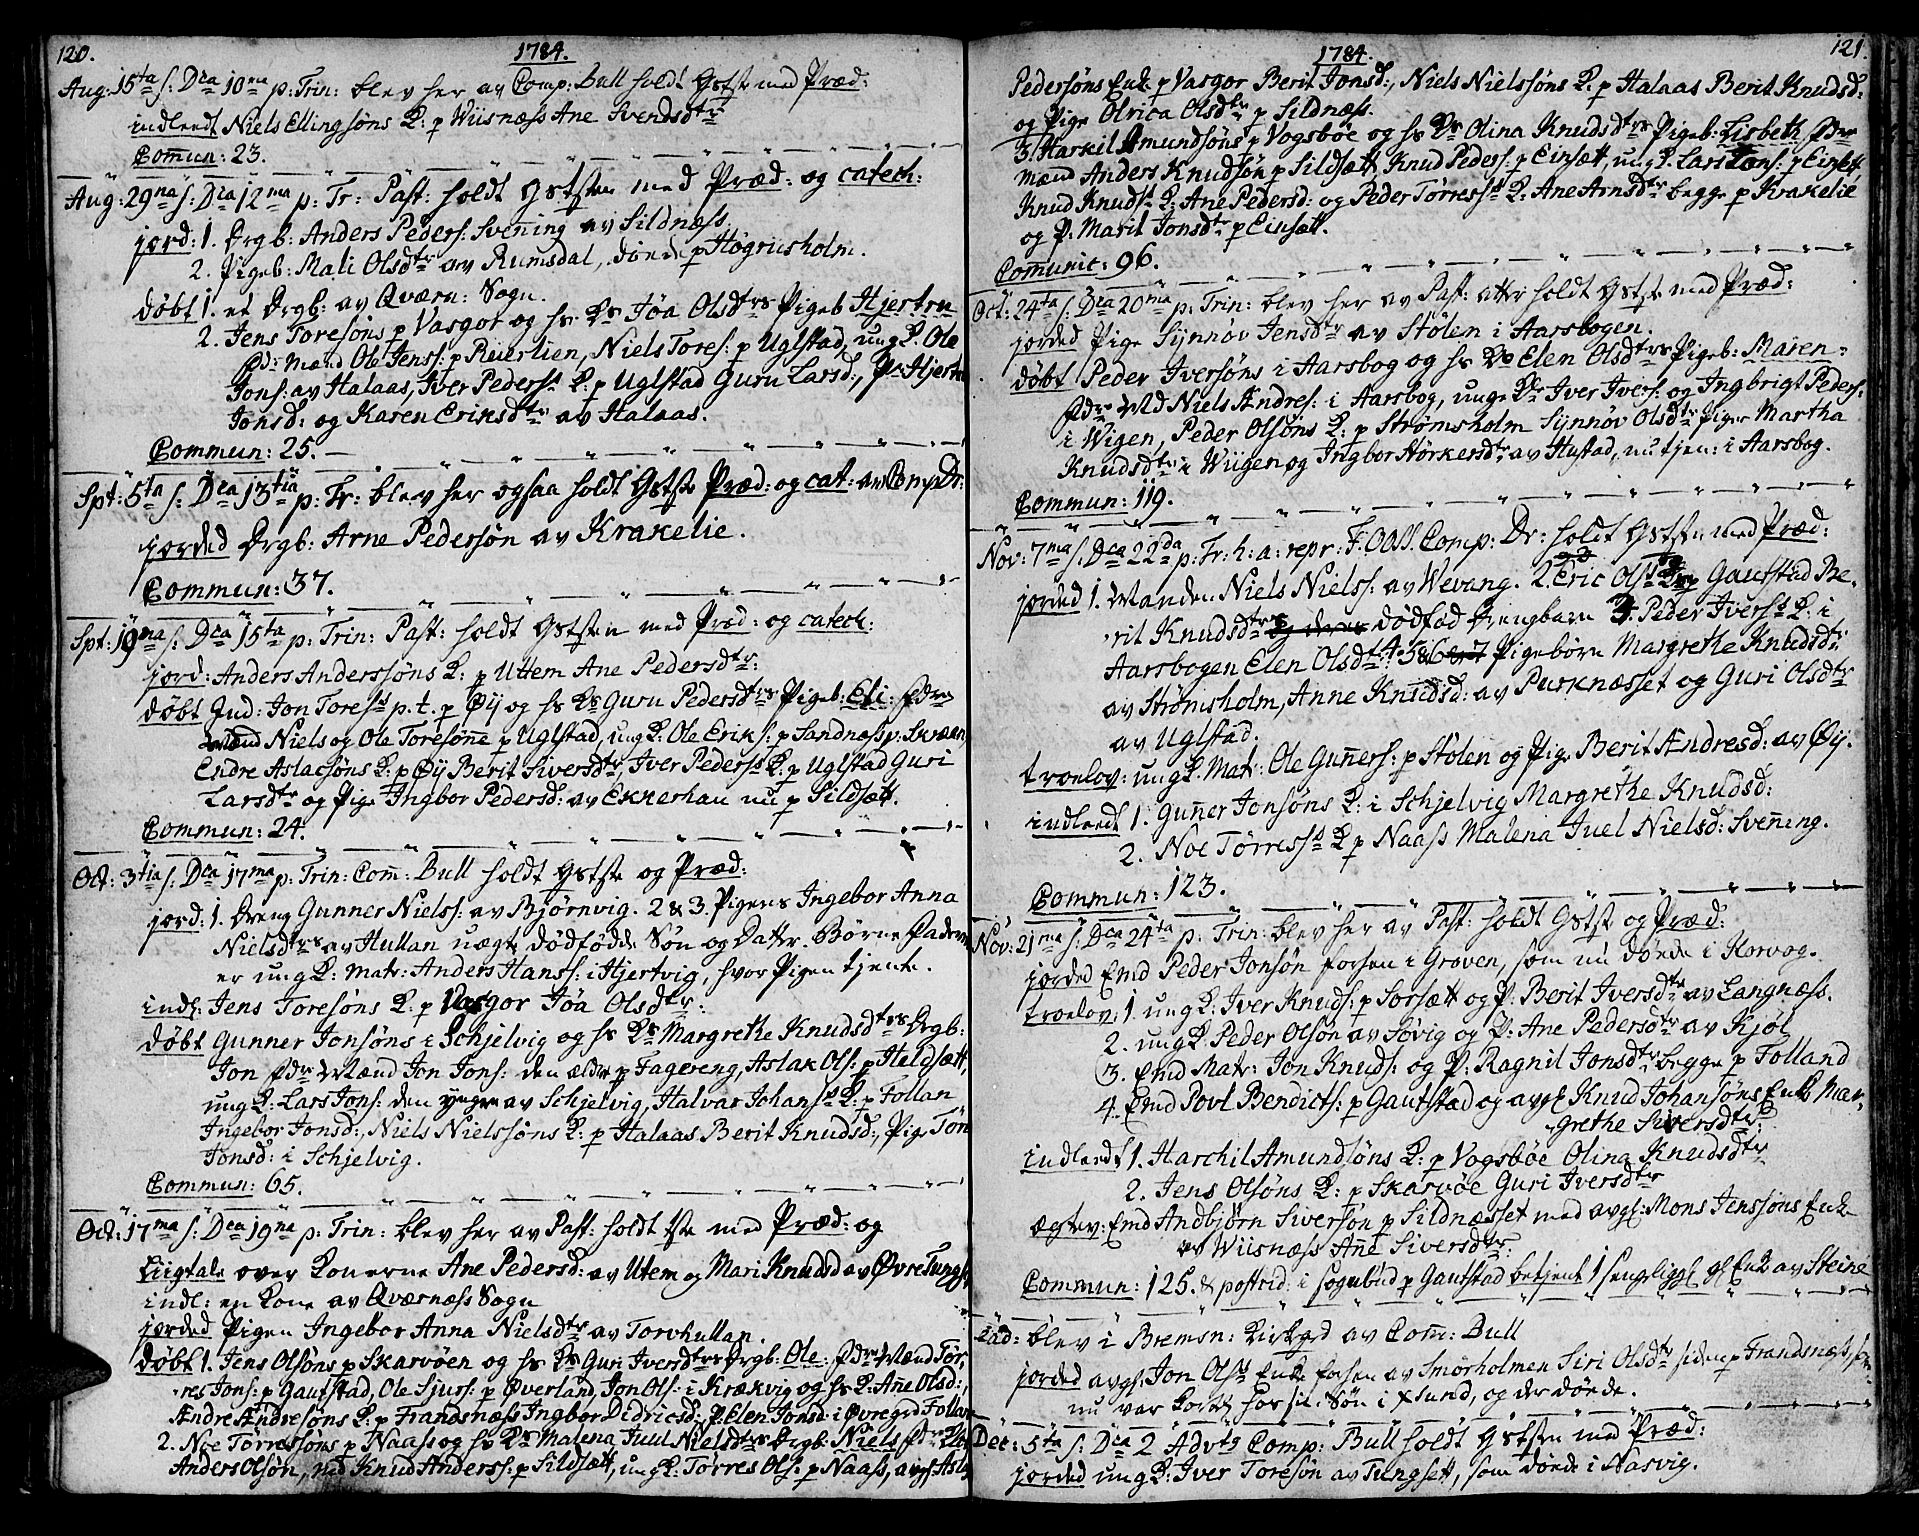 120. 1784.
Aug: 15ta s: Dca 10ma p: Trin: blev her av Comp: Bull holdt Gstste med Præd:
indleedt Niels Ellingsøns K: p Wiisnæss Ane Svendsdtr
Commun: 23.
Aug: 29na s: Dca 12ma p: Tr: Past: holdt Gststen med Præd: og catech:
jord: 1. Drgb: Anders Peders: Svening av Sildnæss.
2. Pigeb: Mali Olsdtr av Rumsdal, døde p Høgriisholm.
døbt 1. et Drgb: av Qværn: Sogn.
2. Jens Toresøns p Vasgor og hs Ks Jøa Olsdtrs Pigeb Hjertru
Fdr: Mænd Ole Jenss: p Reierlien, Niels Tores: p Uglstad, ung K. Ole
Jons: av Halaas, Iver Peders: K: p Uglstad Guru Larsd:, P: Hjertru
Jonsd: og Karen Eriksdtr av Halaas.
Commun: 25.
Spt: 5ta s: Dca 13tia p: Tr: blev her ogsaa holdt Gstste Præd: og cat: av Comp Dr:
jorded Drgb: Arne Pedersøn av Krakelie.
Commun: 37.
Spt: 19ma s: Dca 15ta p: Trin: Past: holdt Gststen med Præd: og catech:
jord: Anders Anderssøns K: p Uttem Ane Pedersdtr:
døbt Ind: Jon Tores: p. t. p Øij og hs Ks Guru Pedersdtrs Pigeb: Eli: Fdre
Mænd Niels og Ole Toresønne p Uglstad, ung K: Ole Eriks: p Sandnæss p: Skræen
Endre Aslacsøns K: p Øij Berit Siversdtr, Iver Peders: K: p Uglstad Guri
Larsdtr og Pige Ingbor Pedersd: av Ekkerhau nu p Sildsætt.
Commun: 24.
Oct: 3tia s: Dca 17ma p: Trin: Com: Bull holdt Gstste og Præd:
jord: 1. Dreng Gunner Niels: av Bjørnvig. 2 & 3. Pigens Ingebor Anna
Nielsdtrs av Hullan uægte dødfødde Søn og Dattr. Børne Faderen
er ung K: Matr: Anders Hanss: i Hjertvig, hvor Pigen tjente.
indl: Jens Toresøns K: p Vasgor Jøa Olsdtr:
døbt Gunner Jonsøns i Schjelvig og hs Ks Margrethe Knudsdtrs Drgb:
Jon Fdre Mænd Jon Jons: den ældre p Fagereng, Aslak Ols: p Haldsætt,
ung K: Lars Jons: den yngre av Schjelvig, Halvar Johans: K: p Follan
Ingebor Jonsd:, Niels Nielssøns K: p Halaas Berit Knudsd:, Pige
Jonsd: i Schjelvig.
Commun: 65.
Oct: 17ma s: Dca 19na p: Trin: blev her av Past: holdt med Præd: og
Liigtale over Konerne Ane Pedersd: av Utem og Mari Knudsd av Øvre
indl: en Kone av Qværnæss Sogn
jorded Pigen Ingebor Anna Nielsdtr av Torvhullan.
døbt 1. Jens Olsøns p Skarvøen og hs Ks Guri Iversdtrs Drgb: Ole: Fdre Mænd Tør,
res Jons: p Gautstad, Ole Sjurs: p Øverland, Jon Ols: i Krækvig og hs K: Anne Olsd:,
Ændre Ændresøns K: p Frandsnæss Ingbor Didricsd:, P: Elen Jonsd: i Øvregrd Follan
2. Noe Tørressøns p Naass og hs Ks Malena Juul Nielsdtrs Drgb: Niels Fdre
Anders Olsøn, Knud Anderss: p Sildsætt, ung K: Tørres Ols: p Naass, avgl
1784. 121.
Pedersøns Enk: p Vasgor Berit Jonsd:, Niels Nielssøns K: p Halaas Berit Knudsd:
og Pige Olrica Olsdtr p Sildnæss.
3. Harkil Amundsøns p Vogsbøe og hs Ks Olina Knudsdtrs Pigeb: Lisbeth Fdre
mænd Anders Knudsøn p Sildsætt, Knud Peders: p Einsætt, ung K. Lars p Einset,
Knud Knuds: K: Ane Pedersd: og Peder Tørress: K: Ane Arnsdtr begge p Krakelie
og P: Marit Jonsdtr p Einsætt.
Comunic: 96.
Oct: 24ta s: Dca 20ma p: Trin: blev her av Past: atter holdt Gstste med Præd:
jorded Pige Synnøv Jensdtr av Stølen i Aarsbogen.
døbt Peder Iversøns i Aarsbog og hs Ks Elen Olsdtrs Pigeb: Maren
Fdre Md Niels Ændres: i Aarsbog, unge Kr Iver Ivers: og Ingbrigt Peders:
i Wigen, Peder Olsøns K: p Strømsholm Synnøv Olsdtr Piger Martha
Knudsdtr i Wiigen og Ingbor Størkersdtr av Hustad, nu tjen: i Aarsbog.
Commun: 119.
Nov: 7ma s: Dca 22da p: Tr: h: a: repr: F: OO SS. Comp: Dr: holdt Gststen med Præd:
jorded 1. Manden Niels Niels: av Wevang. 2. Eric Ols: K: p Gautstad Be,
rit Knudsdtr og deres dødfød Drengbarn 3. Peder Ivers: K: i
Aarsbogen Elen Olsdtr 4 5 & 6 Pigebørn Margrethe Knudsdtr
av Strømsholm, Anne Knudsd: av Purknæsset og Guri Olsdtr
av Uglstad.
troelov: ung K. Matr: Ole Gunners: p Stølen og Pige Berit Ændresd: av Øij.
indleedt 1. Gunner Jonsøns K: i Schjelvig Margrethe Knudsd:
2. Noe Tørress: K: p Naass Malena Juel Nielsd: Svening.
Commun: 123.
Nov: 21ma s: Dca 24ta p: Trin: blev her av Past: holdt Gstste og Præd:
jorded Emd Peder Jonsøn forhen i Groven, som nu døde i Korvog.
troelov: 1. ung K: Iver Knuds: p Sorsætt og P: Berit Iversdtr av Langnæss.
2. ung K Peder Olsøn av Søvig og P: Ane Pedersdtr av Kjøl
3. Emd Matr: Jon Knuds: og P: Ragnil Jonsdtr begge p Folland
4. Emd Povl Bendicts: p Gautstad og avgl Knud Johansøns Enke Mar,
grethe Siversdtr:
indleedt 1. Harchil Amundsøns K: p Vogsbøe Olina Knudsdtr
2. Jens Olsøns K: p Skarvøe Guri Iversdtr
Ægtev: Emd Andbjørn Siversøn p Sildnæsset med avgl: Mons Jenssøns Enke
av Wiisnæss Ane Siversdtr:
Commun: 125. & postrid: i Sognebud p Gautstad betjent 1 sengliggl gl Enk av Steine
blev i Bremsn: Kirkgrd av Com: Bull
jorded avgl: Jon Ols: Enke forhen av Smørholmen Siri Olsdtr siden p Frandsnæss, som
nu var Kortt hos sin Søn i Xsund, og der døde.
Dec: 5ta s: Dca 2 Advts Comp: Bull holdt Gststen med Præd:
jorded ung K: Iver Toresøn av Tungsett, som døde i Aasvig.